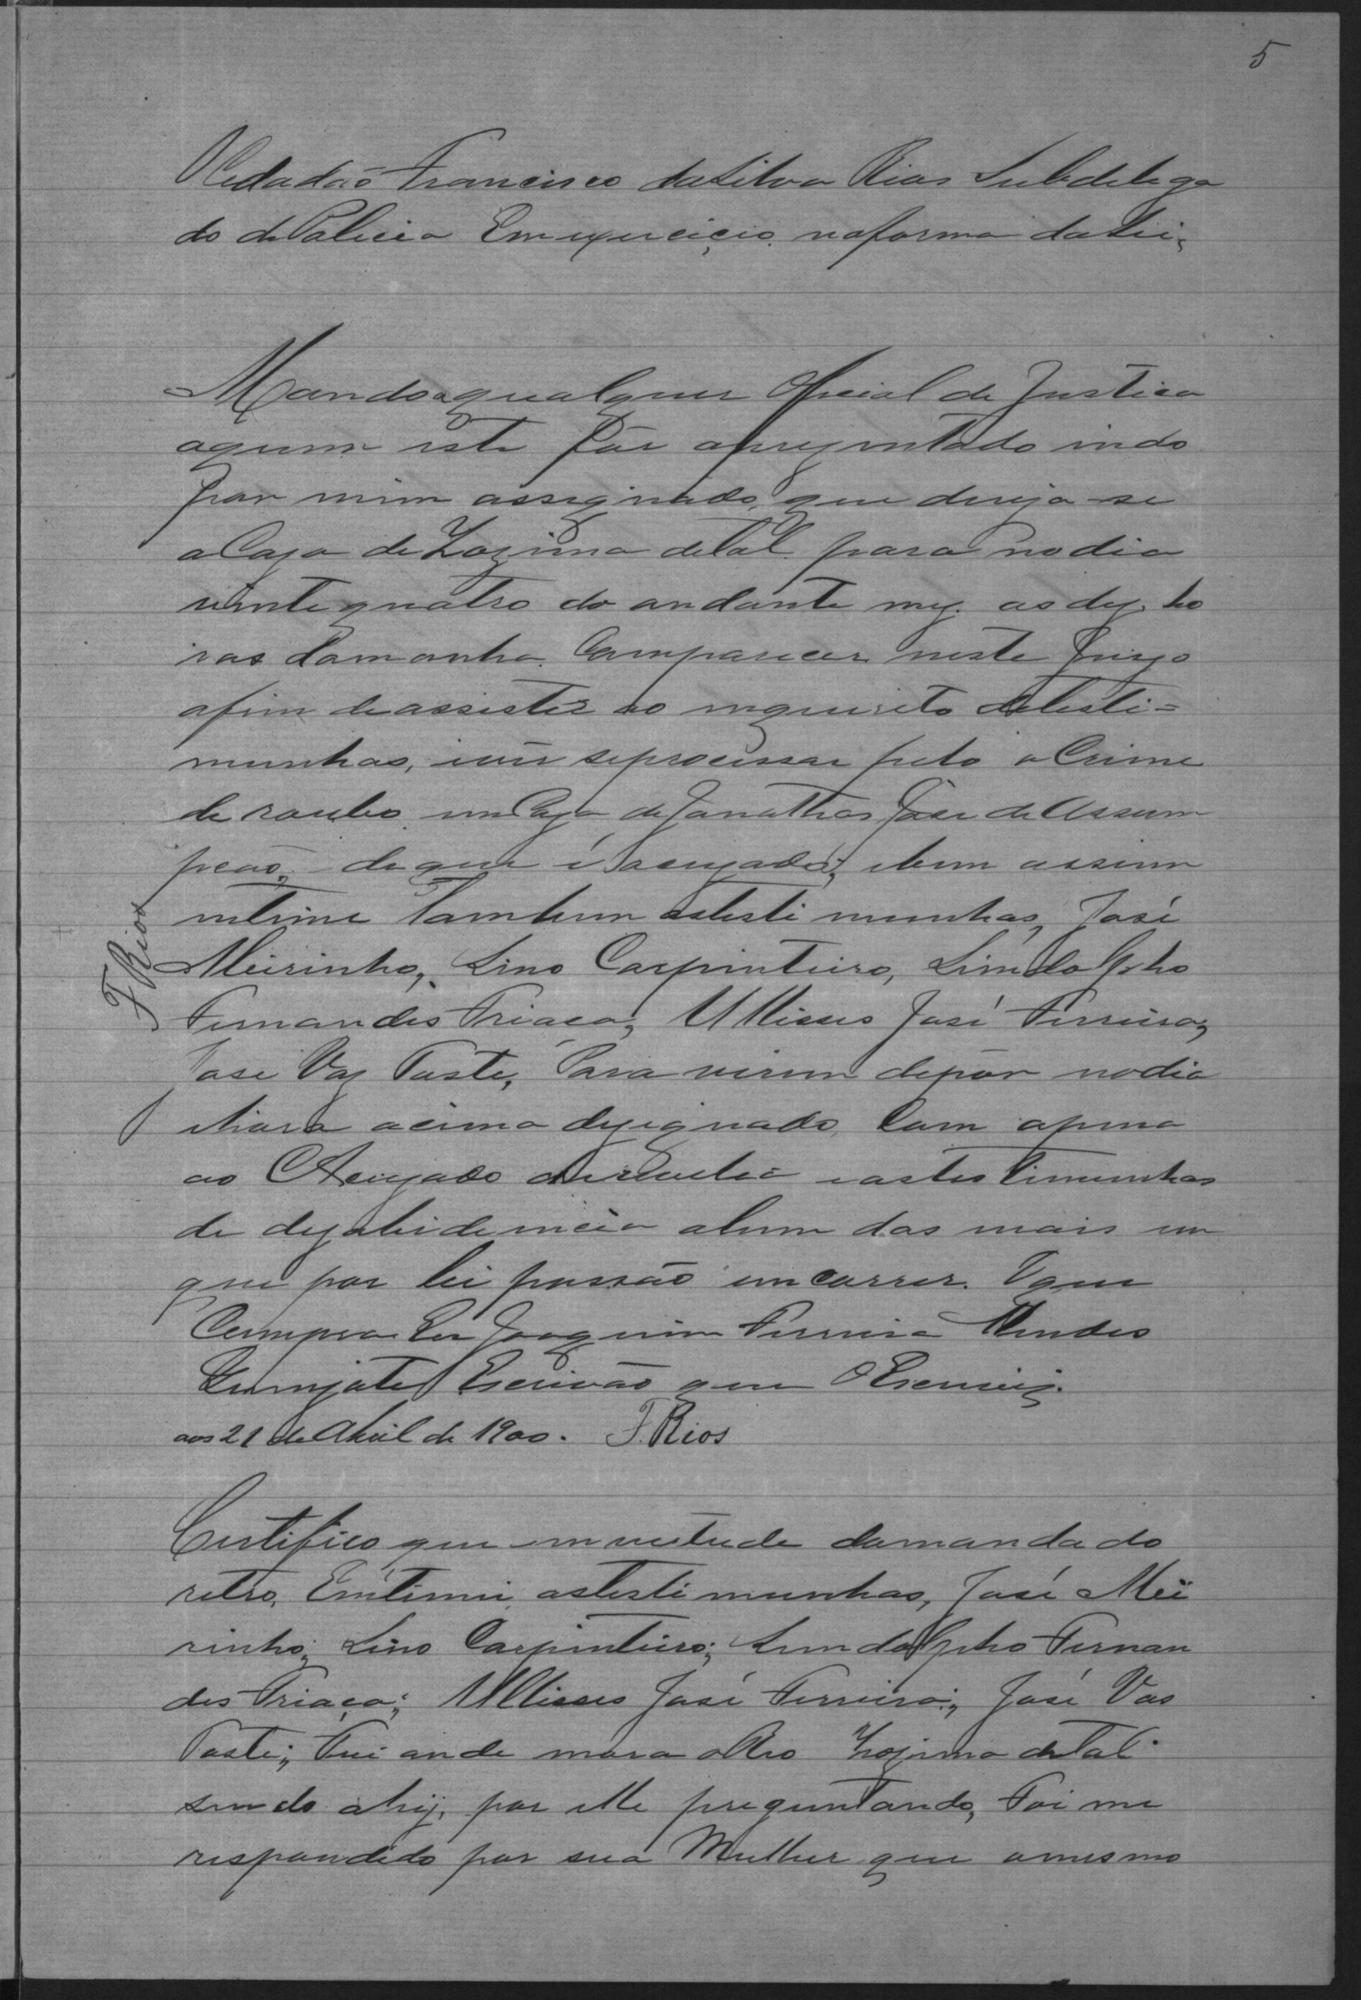 5
O Cidadão Francisco da Silva Rios Subdelega
do de Policia Em exercicio na forma da Lei,
Mando a qualquer Oficial de Justica
a quem este fôr aprezentado indo
por mim assignado, que dirija-se
a Caza de Zozimo de Tal para no dia
vinte quatro do andante mez. as dez ho
ras da manha. Comparecer neste Juizo
afim de assistir ao inquerito de testi=
munhas, e vêr se processar pelo o Crime
de roubo em Caza de Jonathas José de Assum
peção, de que é acuzado; e bem assim
intime tambem as testimunhas, José
Meirinho, Lino Carpinteiro, Lindolpho
Fernandes Friaça, Ullisses José Ferreira,
José Vaz Poste, Para virem depôr no dia
e hora acima dezignado, Com a pena
ao Acuzado de revelia e as testimunhas
de dezobidiencia alem das mais em
que por lei possão emcorrer. O que
Cumpra Eu Joaquim Ferreira Mendes
Escrivão que O Escrevi.
aos 21 de Abril de 1900. F. Rios
F Rios
Certifico que em vertude do mandado
retro, Emtimei as testimunhas, José Mei
rinho; Lino Carpinteiro; Lindolpho Fernan
des Friaça; Ullisses José Ferreira; José Vas
Poste; Fui a onde mora o Reo Zozimo de Tal
sendo ahij, por elle preguntando, Foi me
respondido por sua Mulher que o mesmo